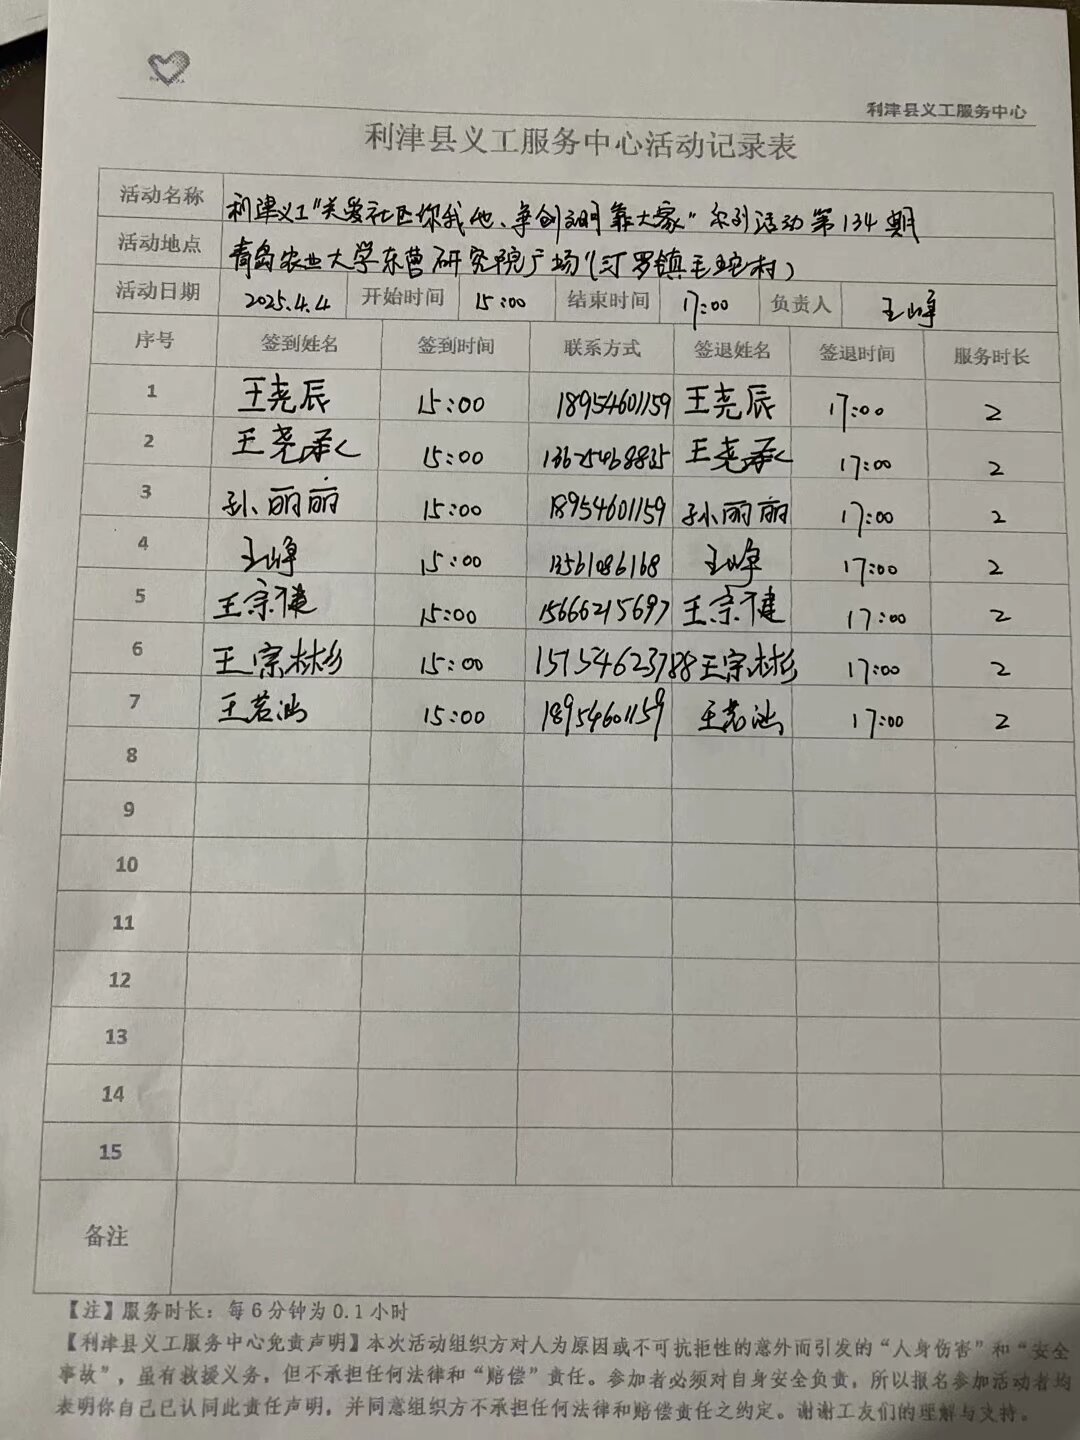 利津县义工服务中心
利津县义工服务中心活动记录表
活动名称 利津义工"关爱社区你我他、争创文明靠大家"系列活动第134期
活动地点 青岛农业大学东营研究院广场(汀罗镇毛坨村)
活动日期 2025.4.4 开始时间 15:00 结束时间 17:00 负责人 王峥
序号 签到姓名 签到时间 联系方式 签退姓名 签退时间 服务时长
1 王尧辰 15:00 18954601159 王尧辰 17:00 2
2 王尧承 15:00 13625468835 王尧承 17:00 2
3 孙丽丽 15:00 18954601159 孙丽丽 17:00 2
4 王峥 15:00 王峥 17:00 2
5 王宗健 15:00 15666215697 王宗健 17:00 2
6 王宗彬 15:00 15154623788 王宗彬 17:00 2
7 王若汕 15:00 18954601159 王若汕 17:00 2
8
9
10
11
12
13
14
15
备注
【注】服务时长：每6分钟为0.1小时
【利津县义工服务中心免责声明】本次活动组织方对人为原因或不可抗拒性的意外而引发的“人身伤害”和“安全
事故”，虽有救援义务，但不承担任何法律和“赔偿”责任。参加者必须对自身安全负责，所以报名参加活动者均
表明你自己已认同此责任声明，并同意组织方不承担任何法律和赔偿责任之约定。谢谢工友们的理解与支持。